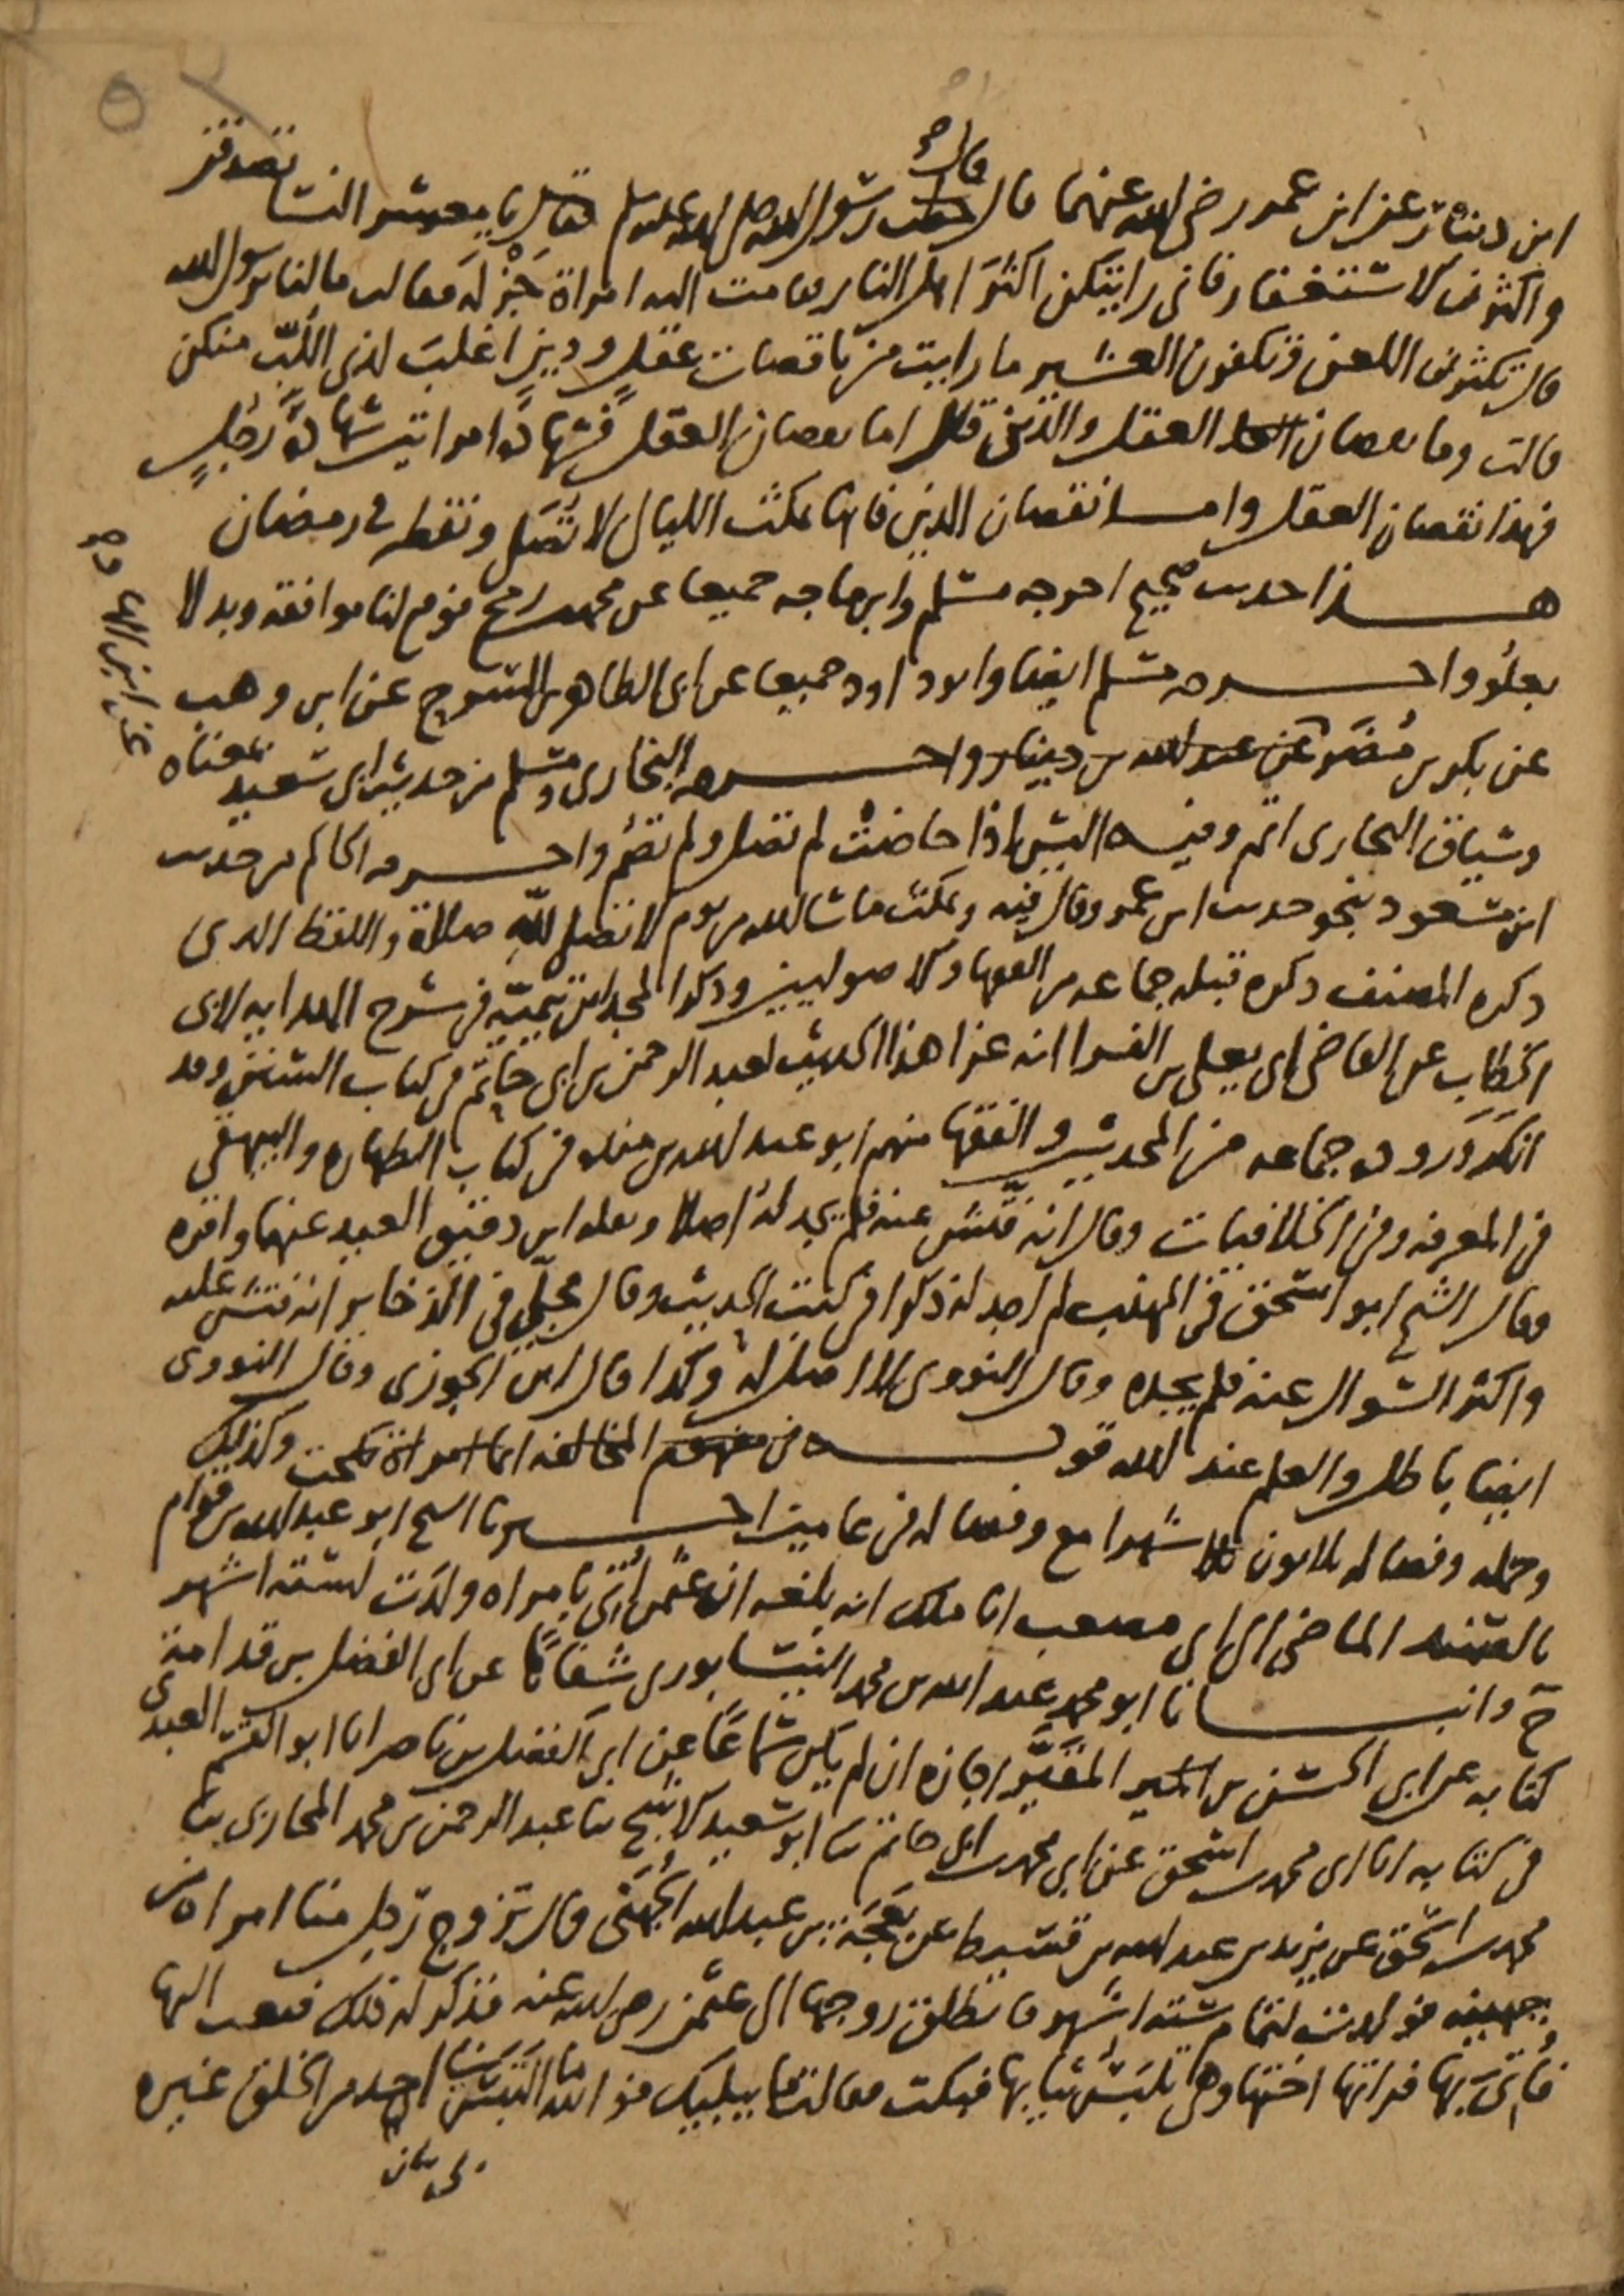 ابن دينار عن ابن عمر رضي الله عنهما قال قال رسول الله صلى الله عليه وسلم يا معشر النسا تصدقن
واكثرن الاستغفار فاني رايتكن اكثر اهل النار فقامت اليه امراة جزلة فقالت ما لنا يرسول الله
قال تكثرن اللعن وتكفرن العشير ما رايت من ناقصات عقل ودين اغلب لذي اللب منكن
قالت وما نقصان العقل والدين قال اما نقصان العقل فشهادة امراتين شهادة رجل
فهذا نقصان العقل واما نقصان الدين فانها تمكث الليالي لا تصلي وتفطر في رمضان
هذا حديث صحيح اخرجه مسلم وابن ماجه جميعا عن محمد بن رمح فوقع لنا موافقة وبدلا
بعلو واخرجه مسلم ايضا وابو داود جميعا عن ابي الطاهر بن السرح عن ابن وهب
عن بكر بن مضر عن عبد الله بن دينار واخرجه البخاري ومسلم من حديث ابي سعيد بمعناه
عن ابن الهاد صح
وسياق البخاري اتم وفيه اليس اذا حاضت لم تصل ولم تصم واخرجه الحاكم من حديث
ابن مسعود بنحو حديث ابن عمر وقال فيه وتمكث ما شا الله من يوم لا تصلي لله صلاة واللفظ الذي
ذكره المصنف ذكره قبله جماعة من الفقها والاصوليين وذكر المجد ابن تيمية في شرح الهداية لابي
الخطاب عن القاضي ابي يعلى بن الفرا انه عزا هذا الحديث لعبد الرحمن بن ابي حاتم في كتاب السنن وقد
انكر وروده جماعة من المحدثين والفقها منهم ابو عبد الله بن منده في كتاب الطهارة والبيهقي
في المعرفة وفي الخلافيات وقال انه فتش عنه فلم يجد له اصلا ونقله ابن دقيق العيد عنهما واقره
وقال الشيخ ابو اسحق في المهذب لم اجد له ذكرا في كتب الحديث وقال مجلي في الذخاير انه فتش عليه
واكثر السوال عنه فلم يجده وقال النووي لا اصل له وكذا قال ابن الجوزي وقال النووي
ايضا باطل والعلم عند الله قوله في مفهوم المخالفة ايما امراة نكحت وكذلك
وحمله وفصاله ثلاثون شهرا مع وفصاله في عامين اخبرنا الشيخ ابو عبد الله بن قوام
بالسند الماضي الى ابي مصعب انا ملك انه بلغه ان عثمن اتي بامراة ولدت لستة اشهر
ح وانبانا ابو محمد عبد الله بن محمد النيسابوري شفاها عن ابي الفضل بن قدامة
كتابه عن ابي الحسن بن المقير اجازة ان لم يكن سماعا عن ابي الفضل بن ناصر انا ابو القسم العبدي
في كتابه انا ابي محمد بن اسحق عن ابي محمد بن ابي حاتم ثنا ابو سعيد الاشج ثنا عبد الرحمن بن محمد المحاربي ثنا
محمد بن اسحق عن يزيد بن عبد الله بن قسيط عن بعجة بن عبد الله الجهني قال تزوج رجل منا امراة من
جهينة فولدت لتمام ستة اشهر فانطلق زوجها الى عثمن رضي الله عنه فذكر له ذلك فبعث اليها
فاتي بها فراتها اختها وهي تلبس ثيابها فبكت فقالت ما يبكيك فوالله ما التبس بي احد من الخلق غيره